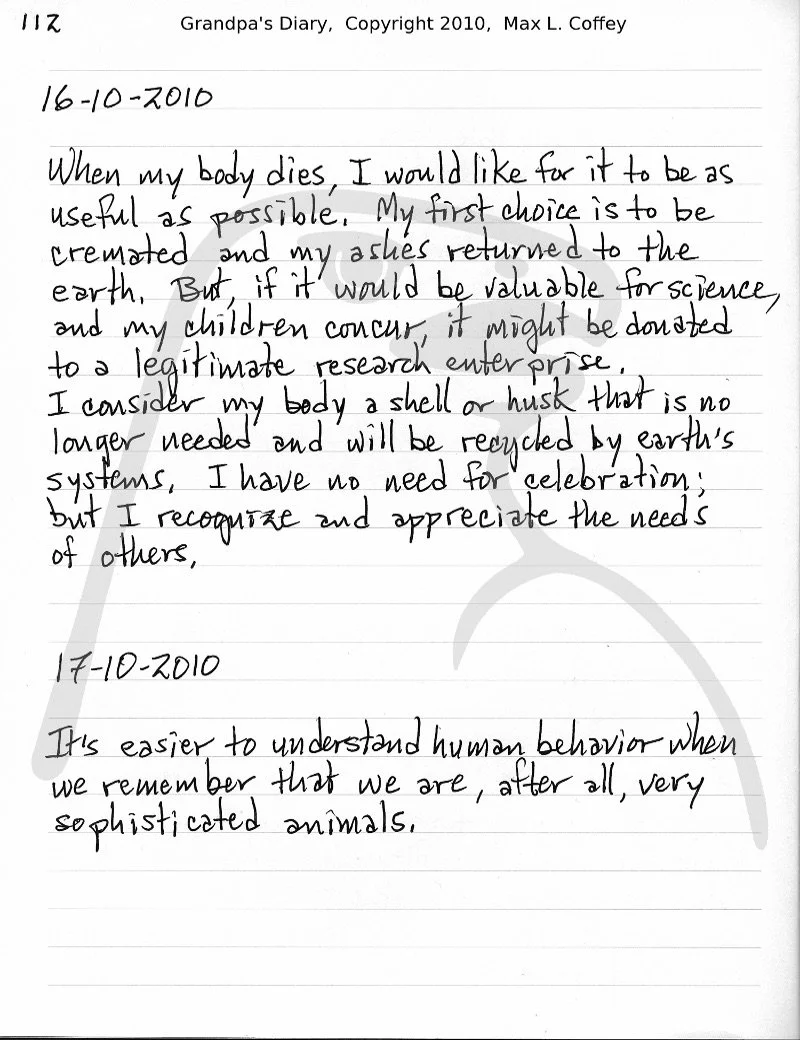 112
Grandpa's Diary, Copyright 2010, Max L. Coffey
16-10-2010
When my body dies, I would like for it to be as
useful as possible. My first choice is to be
cremated and my ashes returned to the
earth. But, if it would be valuable for science,
and my children concur, it might be donated
to a legitimate research enterprise.
I consider my body a shell or husk that is no
longer needed and will be recycled by earth's
systems. I have no need for celebration;
but I recognize and appreciate the needs
of others.
17-10-2010
It's easier to understand human behavior when
we remember that we are, after all, very
sophisticated animals.